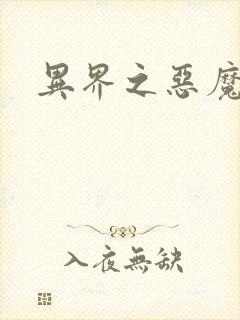 異界之惡魔
入夜無缺